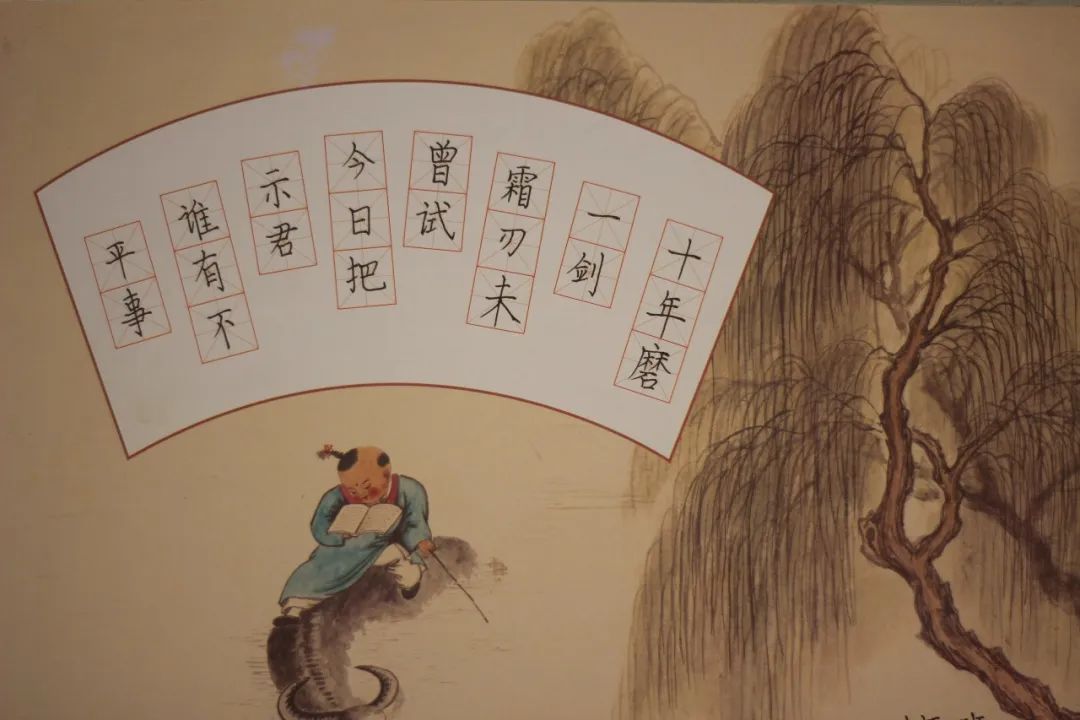 十年磨
一剑
霜刃未
曾试
今日把
示君
谁有不
平事